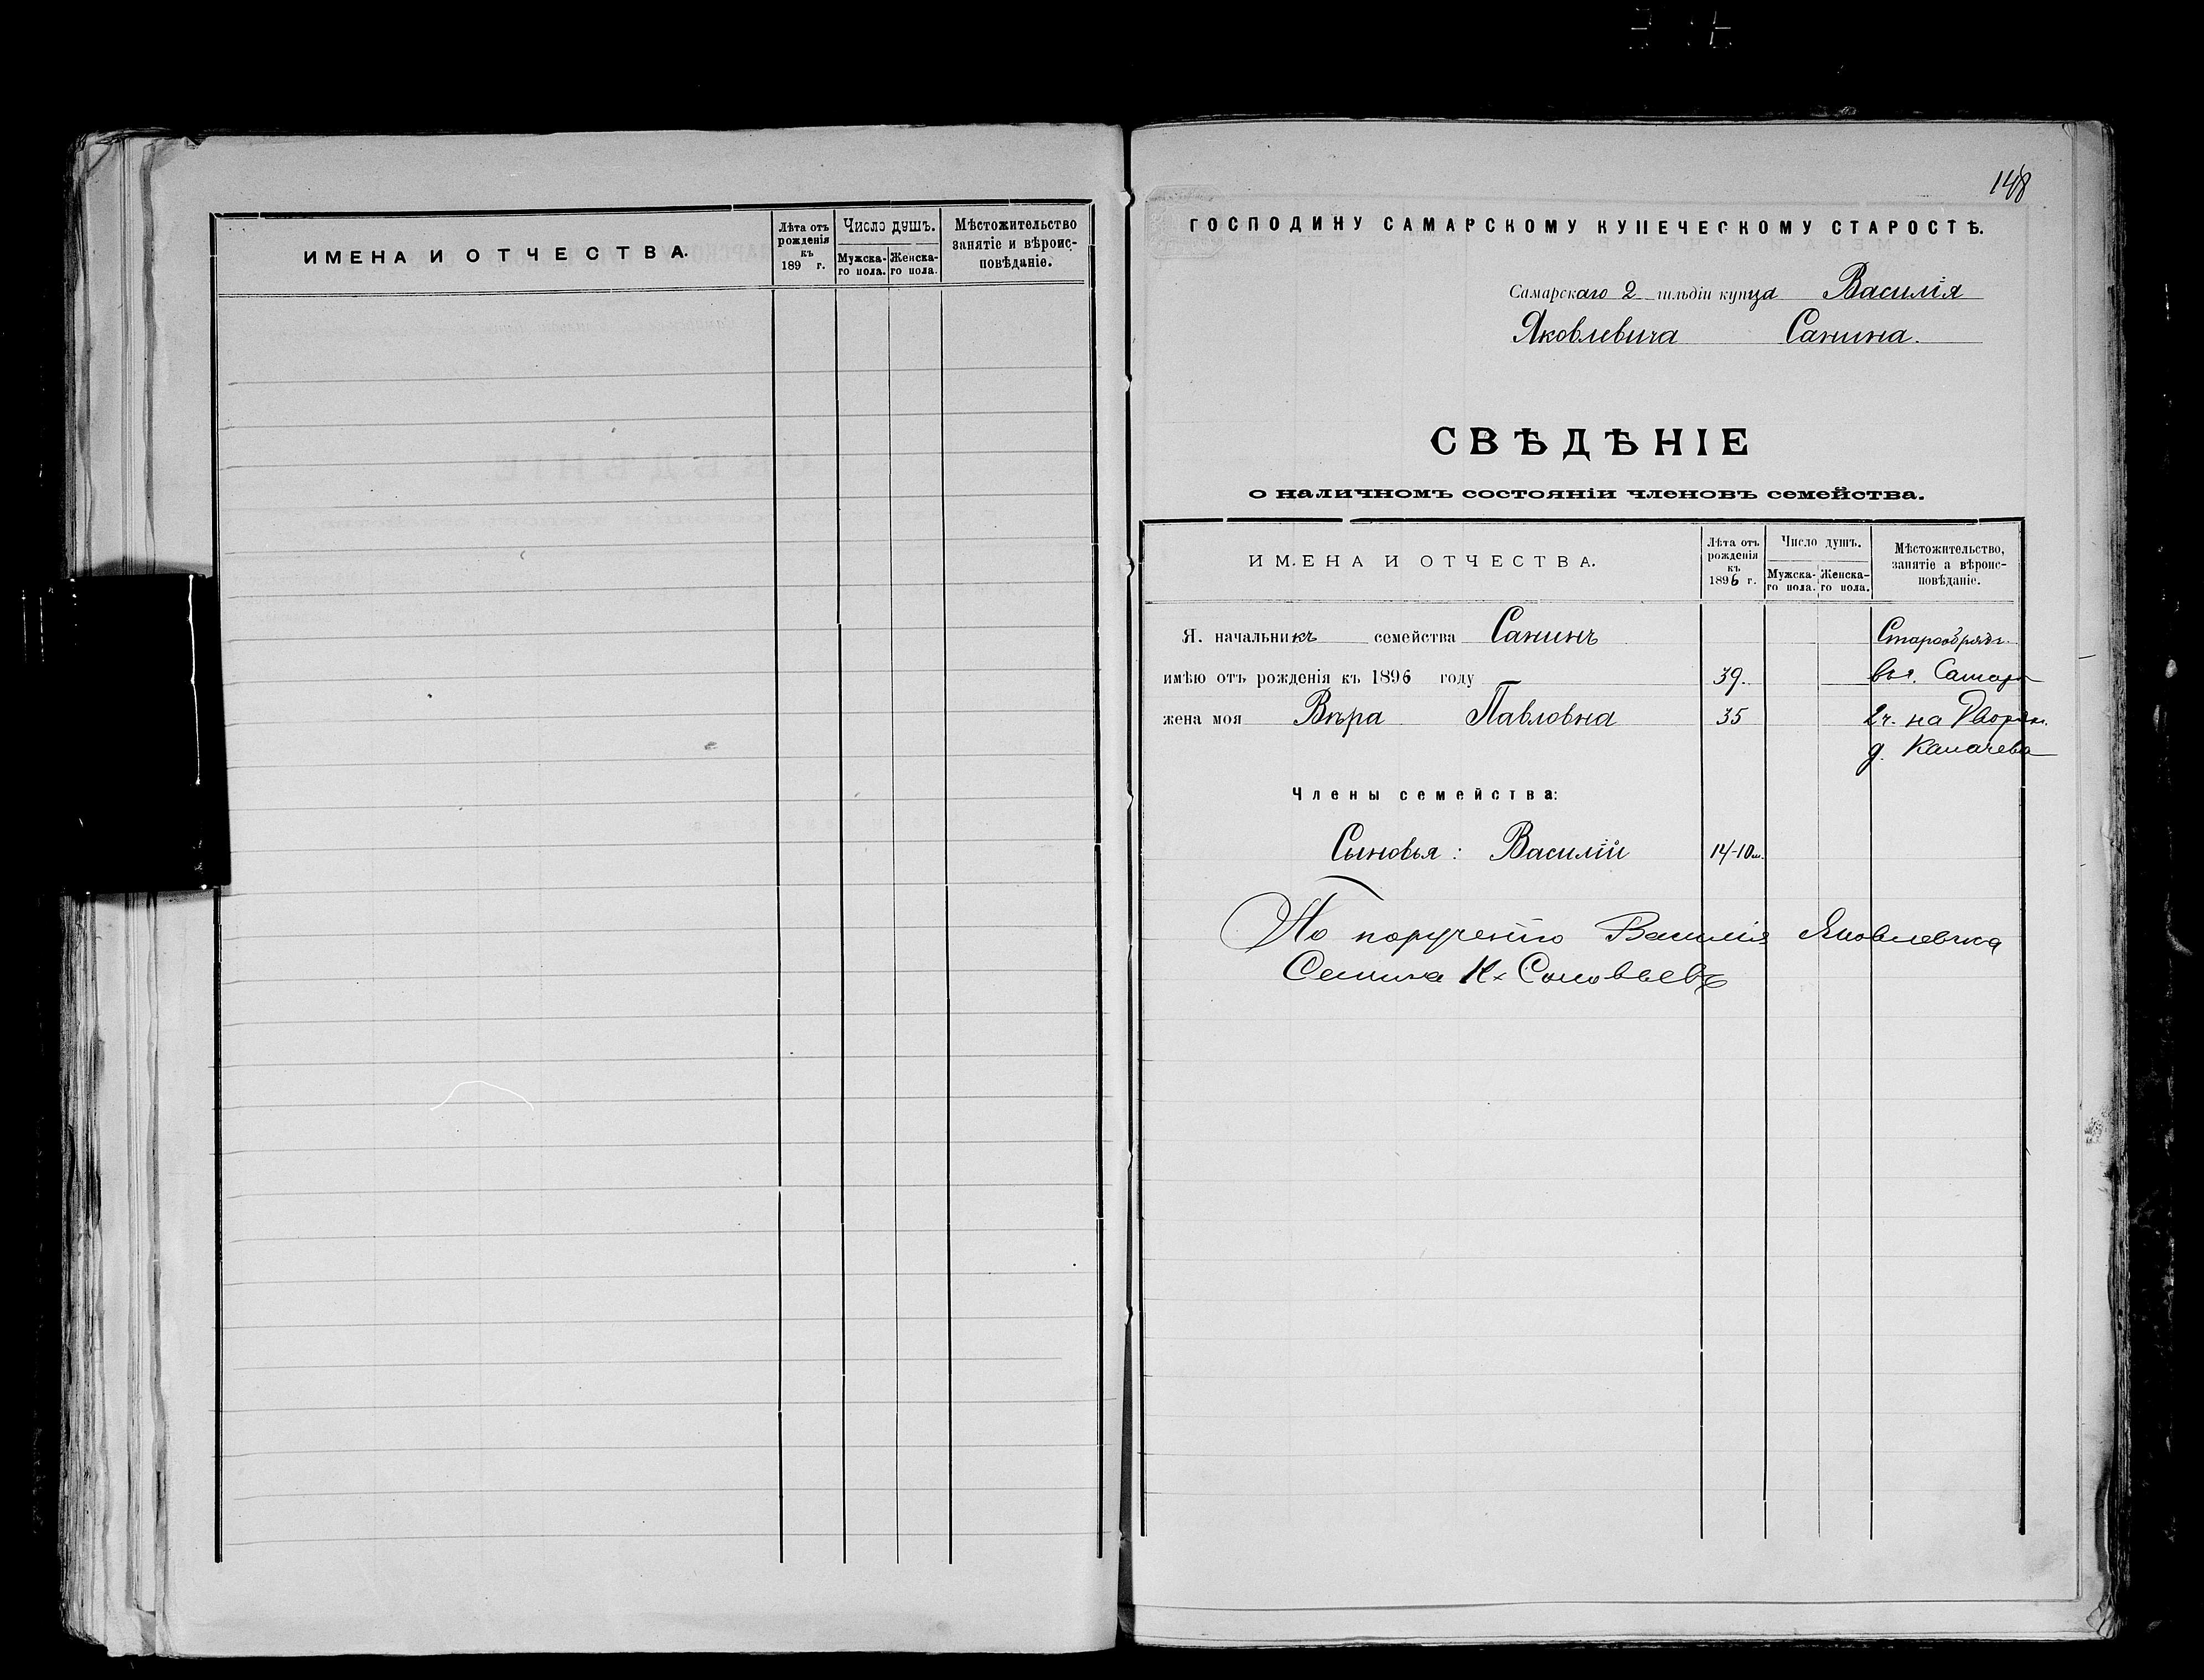 ИМЕНА И ОТЧЕСТВА.
Лѣта отъ рожденія къ 189 г.
Число душъ.
Мужска-го пола.
Женска-го пола.
Мѣстожительство занятіе и вѣроис-повѣданіе.
148
ГОСПОДИНУ САМАРСКОМУ КУПЕЧЕСКОМУ СТАРОСТѢ.
Самарскаго 2 гильдіи купца Василія
Яковлевича Санина.
СВѢДѢНІЕ
о наличномъ состояніи членовъ семейства.
ИМЕНА И ОТЧЕСТВА.
Лѣта отъ рожденія къ 1896 г.
Число душъ.
Мужска-го пола.
Женска-го пола.
Мѣстожительство, занятіе а вѣроис-повѣданіе.
Я. начальникъ семейства Санинъ Старообряд.
имѣю отъ рожденія къ 1896 году 39. Самар
жена моя Вѣра Павловна 35 2 ч. на Дворян.
д. Калачева
Члены семейства:
Сыновья: Василій 14-10м.
По порученію Василія Яковлевича
Санина К. Соловьевъ